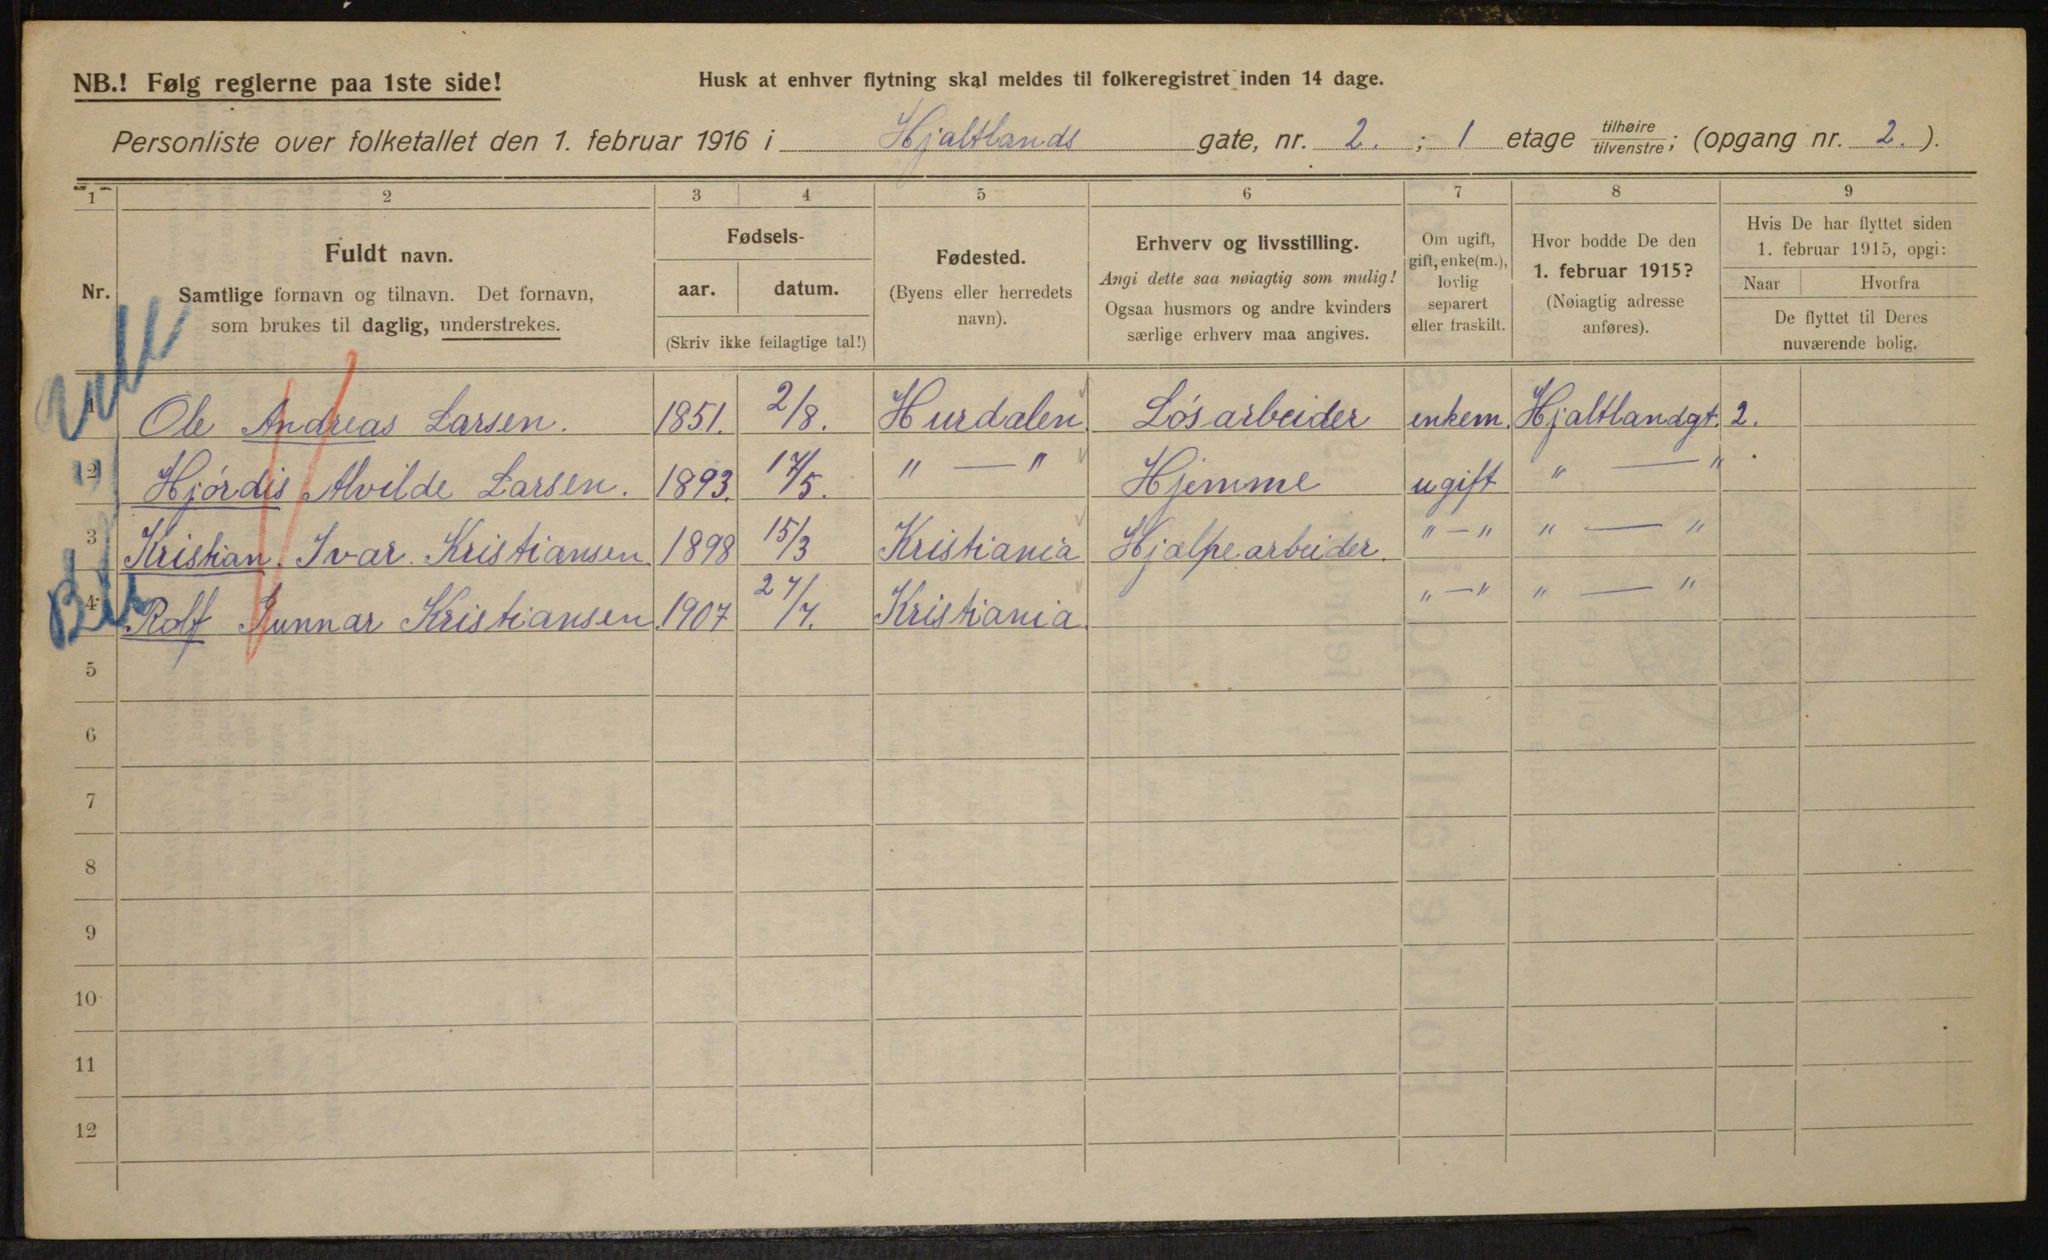 NB.! Følg reglerne paa 1ste side!
Husk at enhver flytning skal meldes til folkeregistret inden 14 dage.
Personliste over folketallet den 1. februar 1916 i Hjaltlands gate, nr. 2. ; 1 etage tilhøire tilvenstre; (opgang nr. 2. ).
1 2 3 4 5 6 7 8 9
Nr.
Fuldt navn.
Samtlige fornavn og tilnavn. Det fornavn,
som brukes til daglig, understrekes.
Fødsels-
aar. datum.
(Skriv ikke feilagtige tal!)
Fødested.
(Byens eller herredets
navn).
Erhverv og livsstilling.
Angi dette saa nøiagtig som mulig!
Ogsaa husmors og andre kvinders
særlige erhverv maa angives.
Om ugift,
gift, enke(m.),
lovlig
separert
eller fraskilt.
Hvor bodde De den
1. februar 1915?
(Nøiagtig adresse
anføres).
Hvis De har flyttet siden
1. februar 1915, opgi:
Naar Hvorfra
De flyttet til Deres
nuværende bolig.
1 Ole Andreas Larsen. 1851. 2/8. Hurdalen. Løsarbeider enkem. Hjaltlandgt. 2.
2 Hjørdis Alvilde Larsen. 1893. 17/5. " — " Hjemme ugift " — "
3 Kristian Ivar Kristiansen. 1898 15/3 Kristiania Hjælpearbeider. " — " " — "
4 Rolf Gunnar Kristiansen. 1907 27/7. Kristiania. " — " " — "
5
6
7
8
9
10
11
12